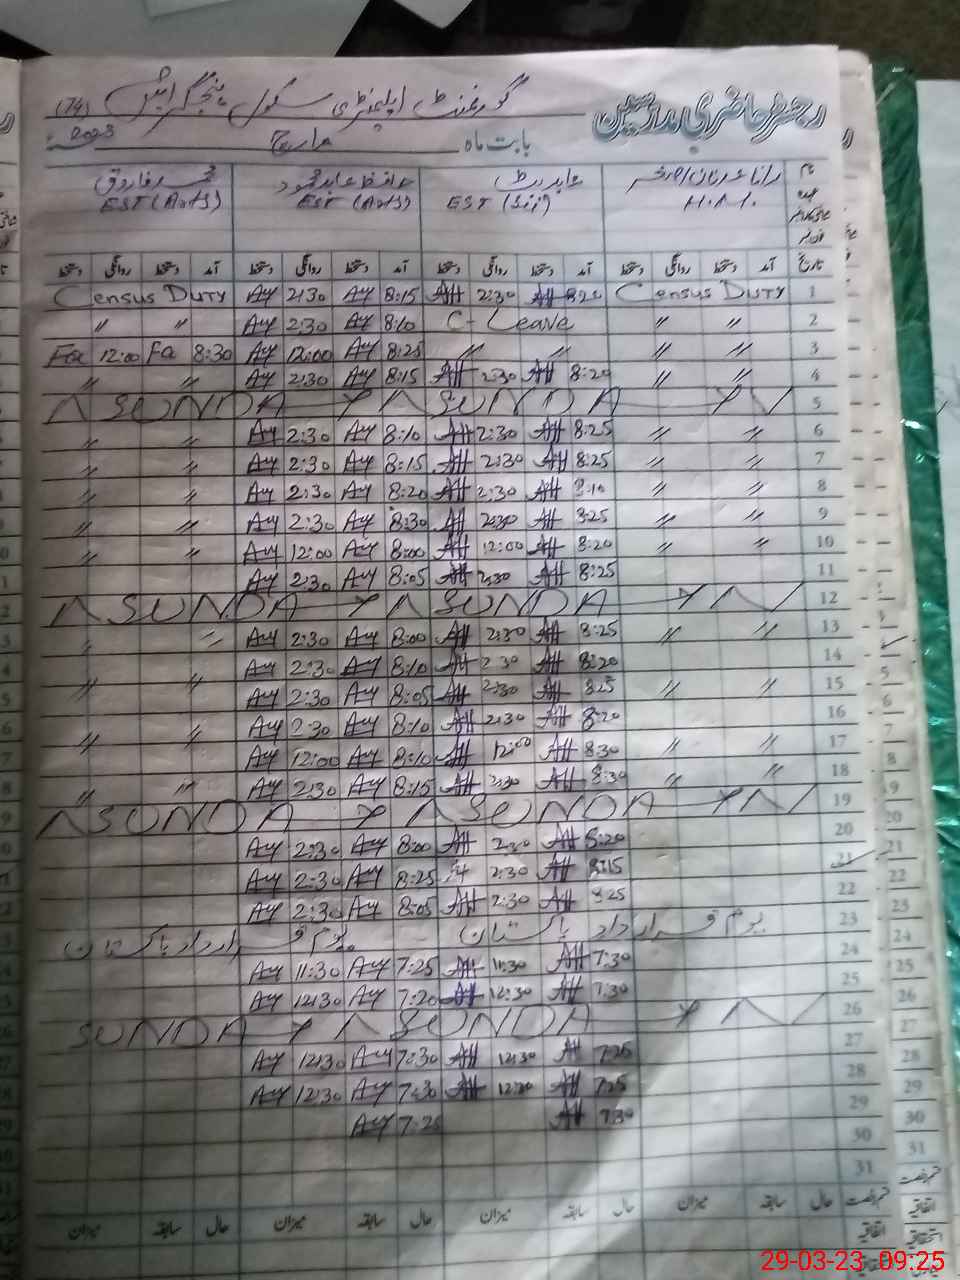 رجسٹر حاضری مدرسین گورنمنٹ ایلیمنٹری سکول (74)
بابت ماہ مارچ 2023
نام رانا عدنان عابد بٹ حافظ عابد محمود محمد فاروق
عہدہ H.M. EST (Sci) EST (Arts) EST (Arts)
تاریخ آمد دستخط روانگی دستخط آمد دستخط روانگی دستخط آمد دستخط روانگی دستخط آمد دستخط روانگی دستخط
Census DUTY Ay 2:30 Ay 8:15 AH 2:30 AH 8:20 Census DUTY 1
〃 〃 Ay 2:30 Ay 8:10 C-Leave 〃 〃 2
Fa 12:00 Fa 8:30 Ay 12:00 Ay 8:25 〃 〃 〃 〃 3
〃 〃 Ay 2:30 Ay 8:15 AH 2:30 AH 8:20 〃 〃 4
SUNDAY SUNDAY 5
〃 〃 Ay 2:30 Ay 8:10 AH 2:30 AH 8:25 〃 〃 6
〃 〃 Ay 2:30 Ay 8:15 AH 2:30 AH 8:25 〃 〃 7
〃 〃 Ay 2:30 Ay 8:20 AH 2:30 AH 8:10 〃 〃 8
〃 〃 Ay 2:30 Ay 8:30 AH 2:30 AH 8:25 〃 〃 9
〃 〃 Ay 12:00 Ay 8:00 AH 12:00 AH 8:20 〃 〃 10
Ay 2:30 Ay 8:05 AH 2:30 AH 8:25 11
SUNDAY SUNDAY 12
〃 〃 Ay 2:30 Ay 8:00 AH 2:30 AH 8:25 〃 〃 13
Ay 2:30 Ay 8:10 AH 2:30 AH 8:20 14
〃 〃 Ay 2:30 Ay 8:05 AH 2:30 AH 8:25 〃 〃 15
Ay 2:30 Ay 8:10 AH 2:30 AH 8:20 16
〃 〃 Ay 12:00 Ay 8:10 AH 12:00 AH 8:30 〃 〃 17
〃 〃 Ay 2:30 Ay 8:15 AH 2:30 AH 8:30 〃 〃 18
SUNDAY SUNDAY 19
Ay 2:30 Ay 8:00 AH 2:30 AH 8:20 20
Ay 2:30 Ay 8:25 AH 2:30 AH 8:15 21
Ay 2:30 Ay 8:05 AH 2:30 AH 8:25 22
یوم قرارداد پاکستان یوم قرارداد پاکستان 23
Ay 11:30 Ay 7:25 AH 11:30 AH 7:30 24
Ay 12:30 Ay 7:20 AH 12:30 AH 7:30 25
SUNDAY SUNDAY 26
Ay 12:30 Ay 7:30 AH 12:30 AH 7:25 27
Ay 12:30 Ay 7:30 AH 12:30 AH 7:25 28
Ay 7:25 AH 7:30 29
30
31
قسم رخصت حال سابقہ میزان حال سابقہ میزان حال سابقہ میزان حال سابقہ میزان
اتفاقیہ
29-03-23 09:25